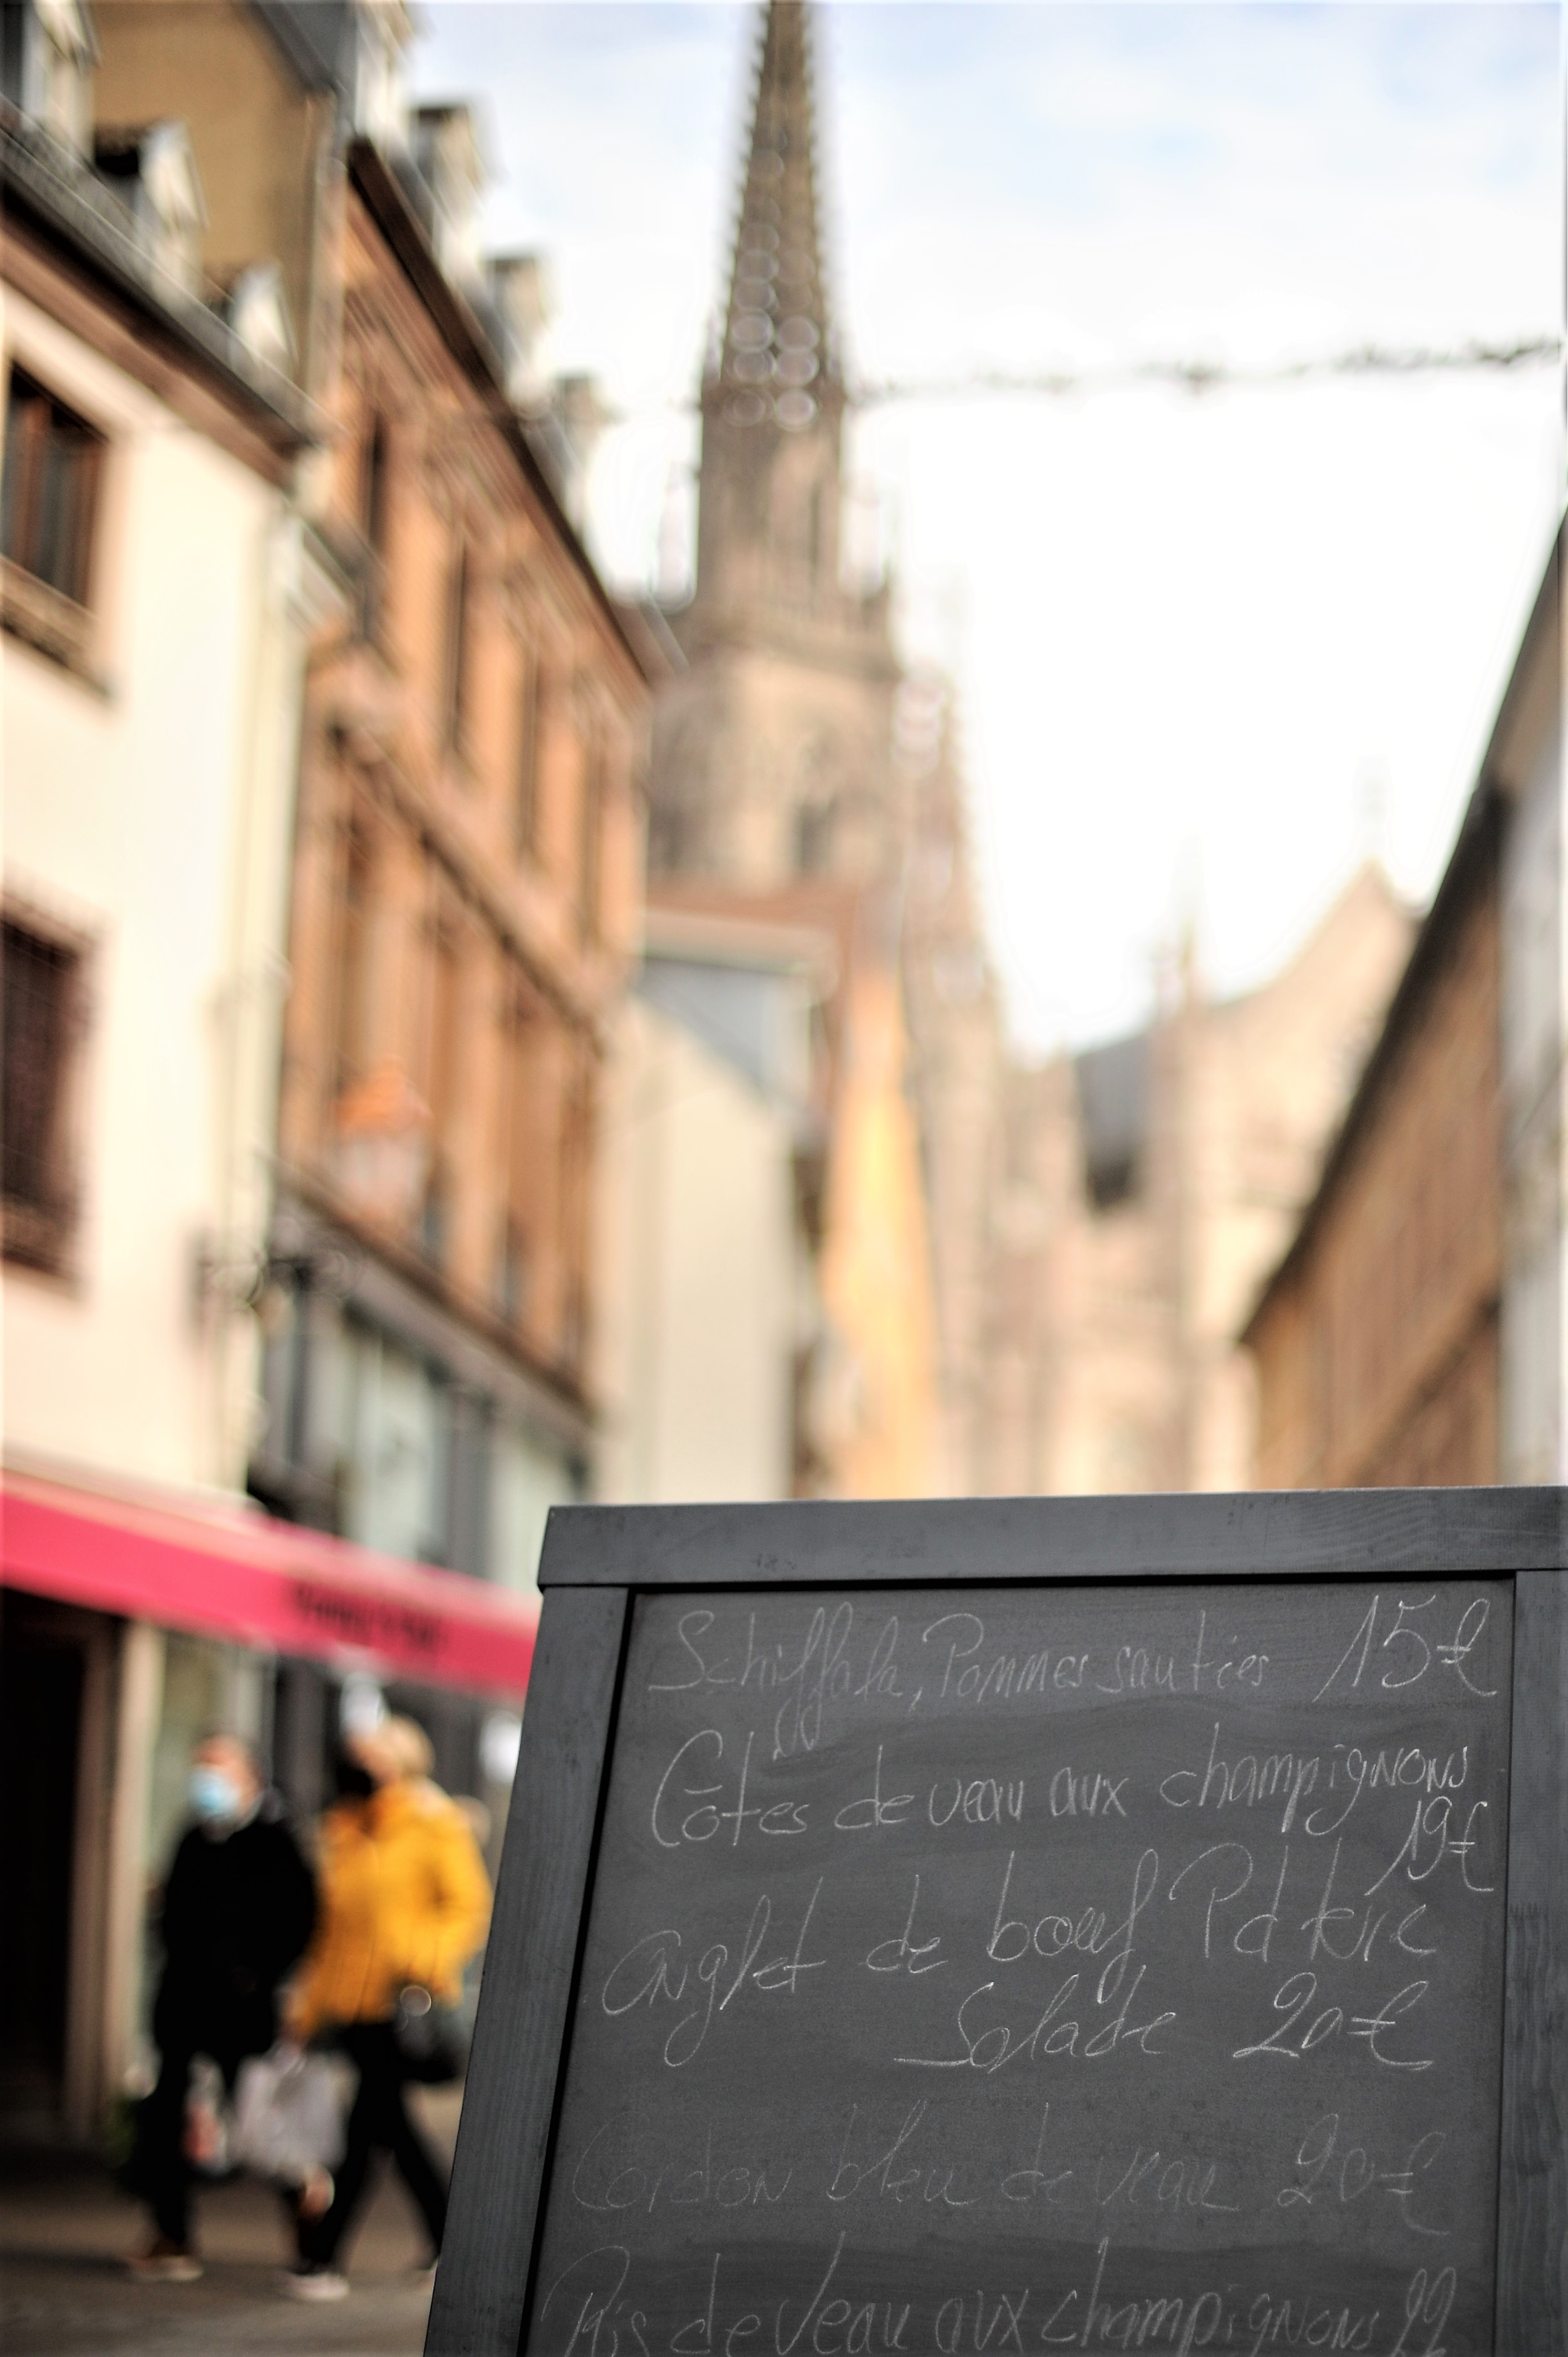 Schiffala, Pommes sautées 15€
Côtes de veau aux champignons
19€
Onglet de bœuf Patate
Salade 20€
Cordon bleu de veau 20€
Ris de veau aux champignons 22